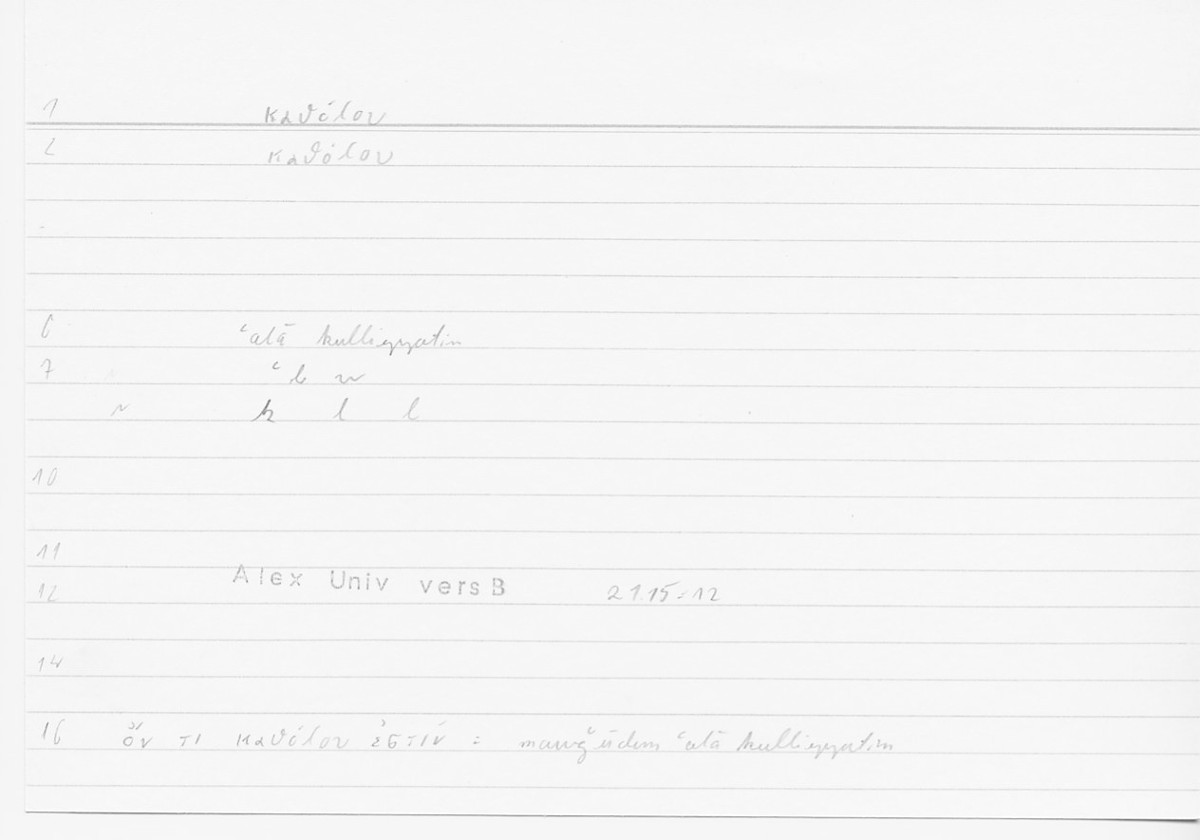 1 καθόλου
2 καθόλου
6 ʿalā kulliyyatin
7 ʿ l w
k l l
10
11
Alex Univ vers B 21.15 = 12
12
14
16 ὄν τι καθόλου ἐστίν = mawǧūdun ʿalā kulliyyatin